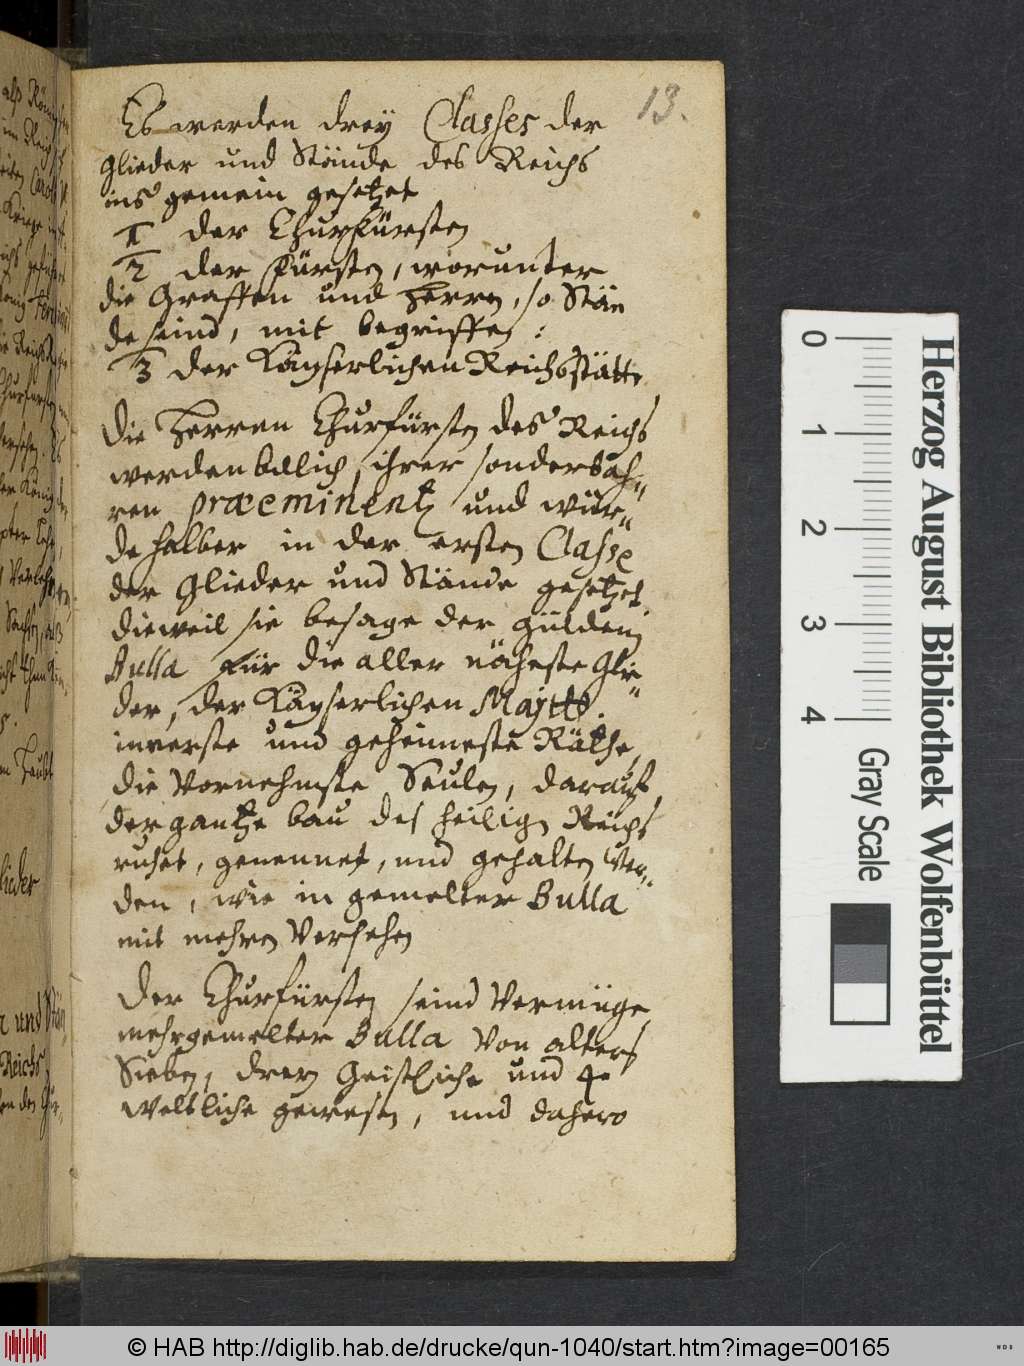 13.
Es werden drey Classes der
Glieder und Stände des Reichs
ins gemein gesetzet
1 der Churfürsten
2 der Fürsten, worunter
die Graffen und Herren, so Stän
de seind, mit begriffen:
3 der Käyserlichen Reichsstätte
Die Herren Churfürsten des Reichs
werden billich ihrer sonderbah-
ren præeminentz und wür-
de halber in der ersten Classe
der Glieder und Stände gesetzet.
dieweil sie besage der gülden
Bulla für die aller nächeste Glie-
der, der Käyserlichen Maytt.
inverste und geheimeste Räthe,
die Vornehmste Seulen, darauf
der gantze bau des heilign Reichs
ruhet, genennet, und gehalten Wer-
den, wie in gemelter Bulla
mit mehren Versehen
Der Churfürsten seind Vermüge
mehrgemelter Bulla Von alters
Sieben, dreyn Geistliche und 4
weltliche gewesen, und dahero
Herzog August Bibliothek Wolfenbüttel
0 1 2 3 4
Gray Scale
© HAB http://diglib.hab.de/drucke/qun-1040/start.htm?image=00165